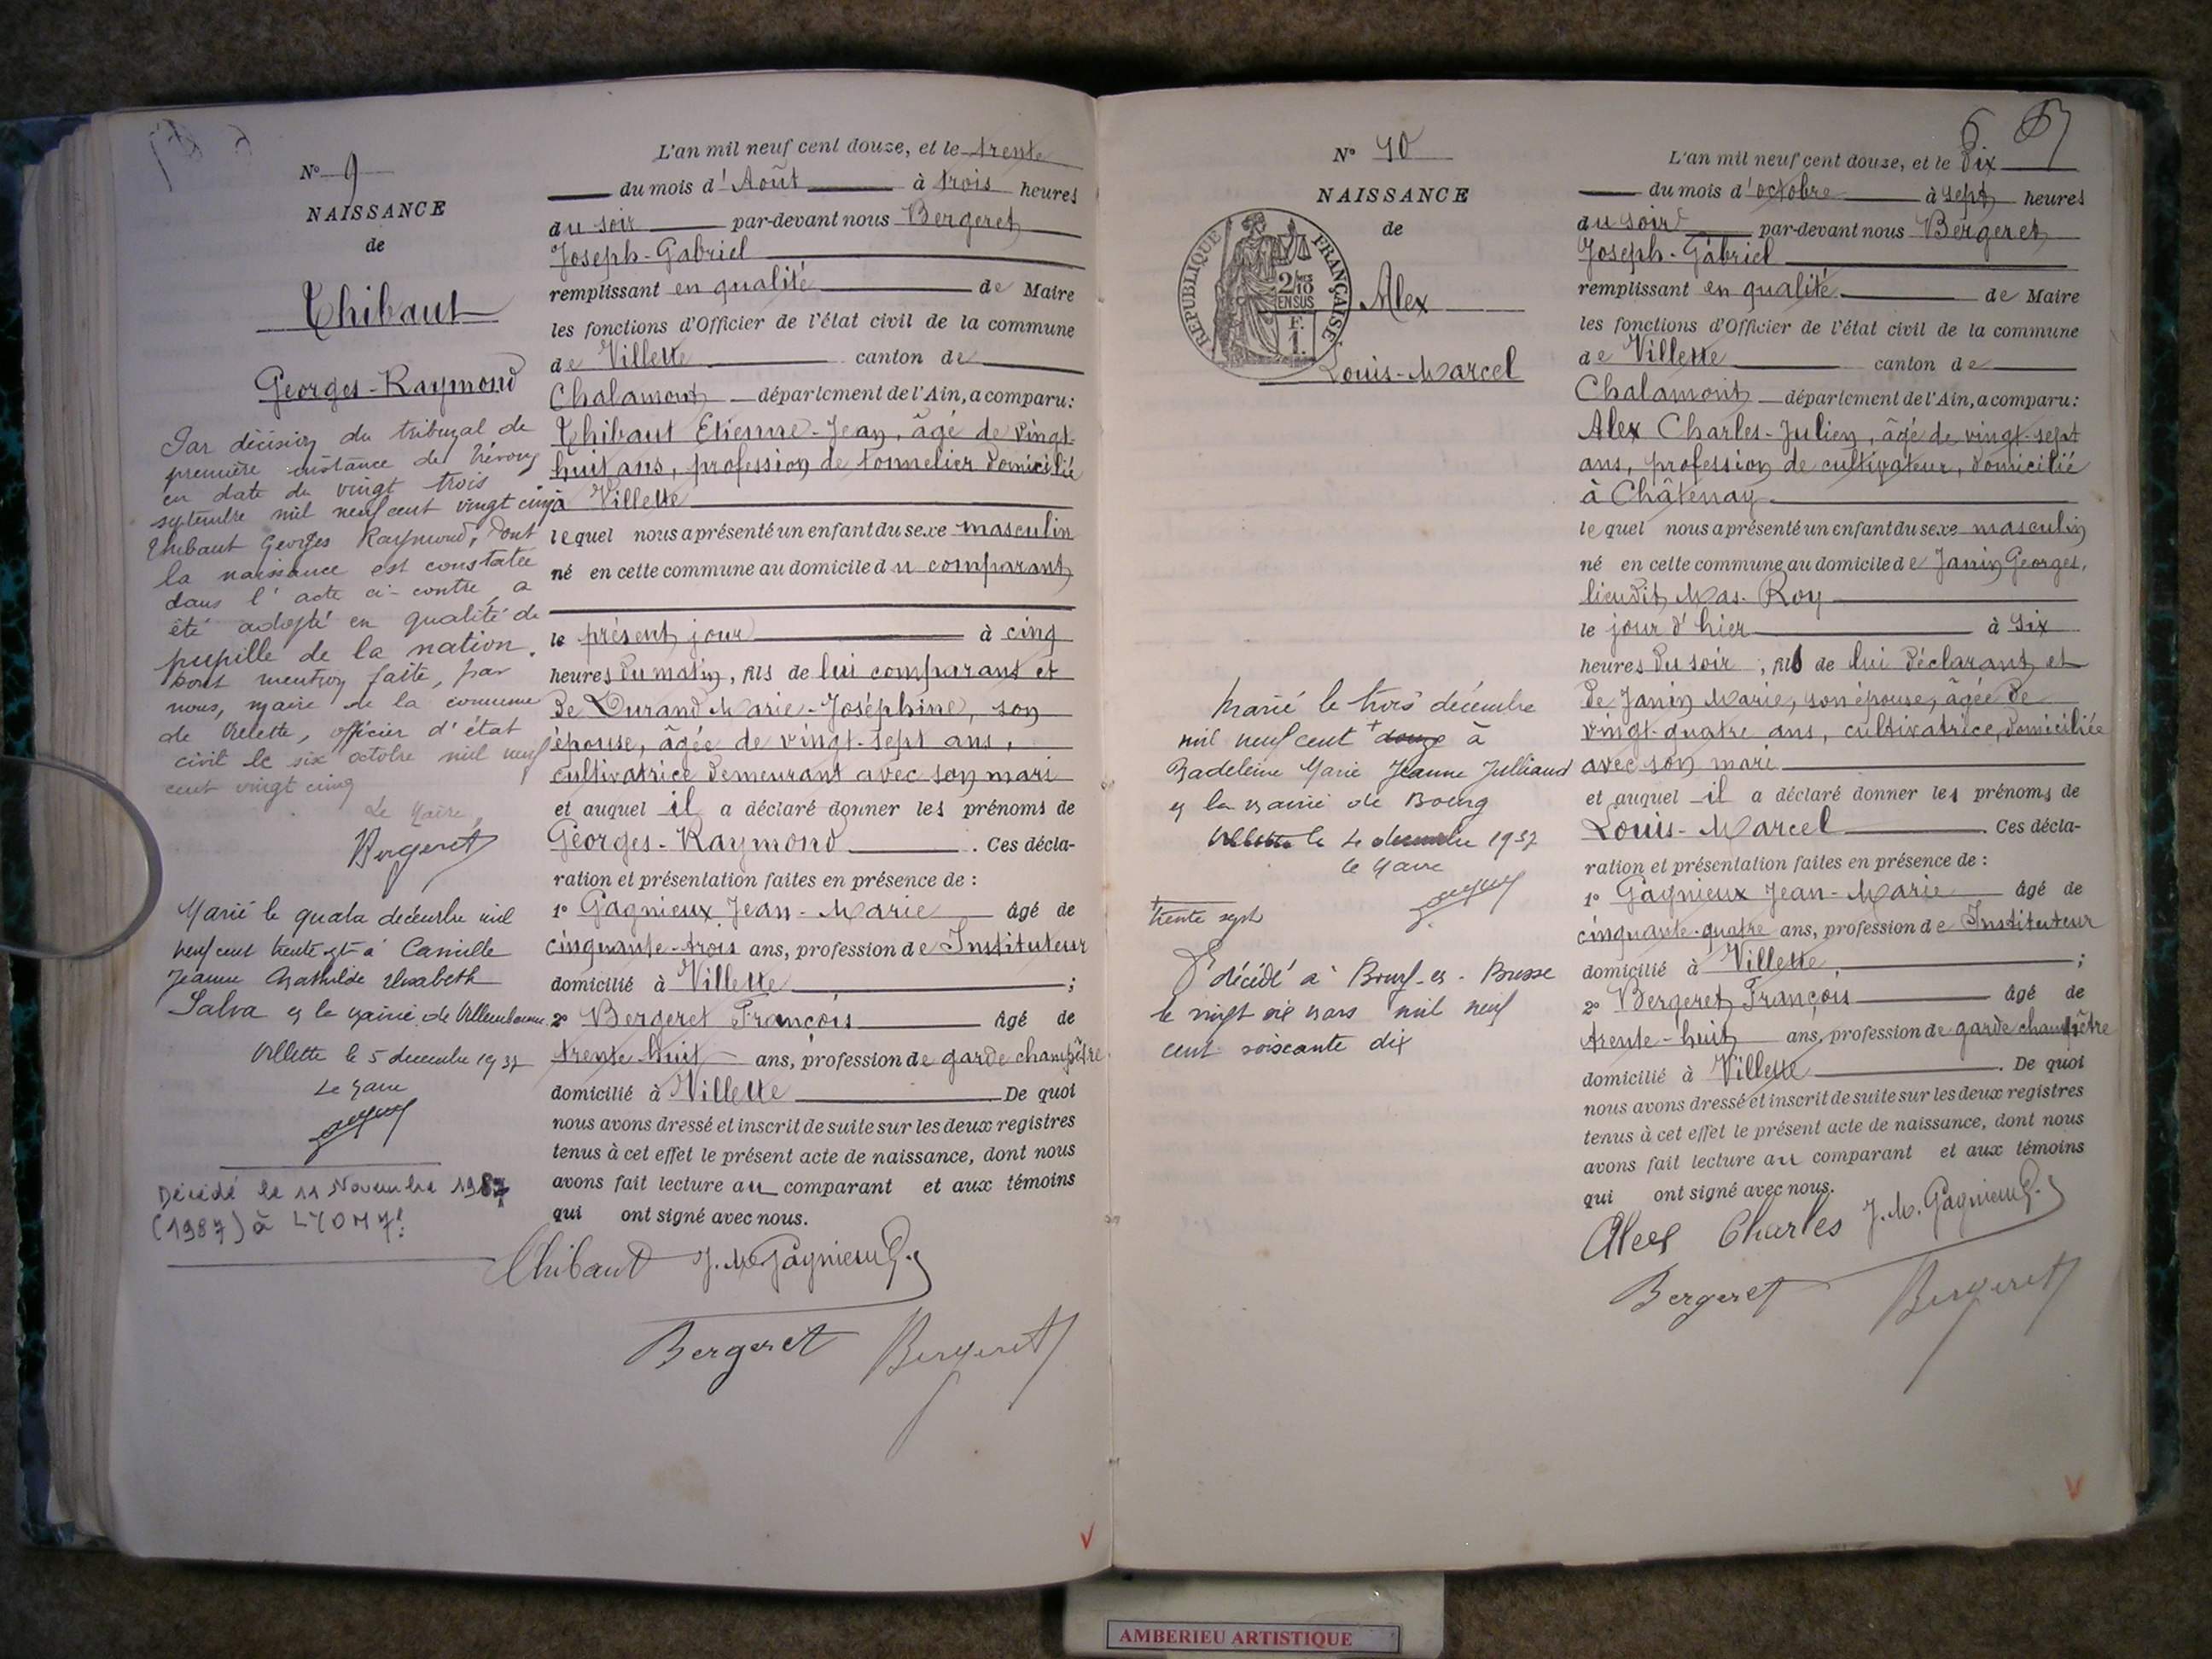 N° 9
NAISSANCE
de
Thibaut
Georges-Raymond
Par décision du tribunal de
première instance de Trévoux
en date du vingt trois
septembre mil neuf cent vingt cinq
Thibaut Georges Raymond, dont
la naissance est constatée
dans l'acte ci-contre, a
été adopté en qualité de
pupille de la nation.
Dont mention faite, par
nous, maire de la commune
de Villette, officier d'état
civil le six octobre mil neuf
cent vingt cinq
Le Maire,
Bergeret
Marié le quatre décembre mil
neuf cent trente sept à Camille
Jeanne Mathilde Elisabeth
Salva en la mairie de Villeurbanne.
Villette le 5 decembre 1937
Le Maire
Décédé le 11 Novembre 1987
(1987) à LYON 7e
L'an mil neuf cent douze, et le trente
du mois d'Août à trois heures
du soir par-devant nous Bergeret
Joseph-Gabriel
remplissant en qualité de Maire
les fonctions d'Officier de l'état civil de la commune
de Villette canton de
Chalamont département de l'Ain, a comparu:
Thibaut Etienne-Jean, âgé de vingt-
huit ans, profession de tonnelier domicilié
à Villette
lequel nous a présenté un enfant du sexe masculin
né en cette commune au domicile du comparant
le présent jour à cinq
heures du matin, fils de lui comparant et
de Durand Marie-Joséphine, son
épouse, âgée de vingt-sept ans,
cultivatrice demeurant avec son mari
et auquel il a déclaré donner les prénoms de
Georges-Raymond. Ces décla-
ration et présentation faites en présence de :
1° Gagnieux Jean-Marie âgé de
cinquante-trois ans, profession de Instituteur
domicilié à Villette ;
2° Bergeret François âgé de
trente-huit ans, profession de garde champêtre
domicilié à Villette De quoi
nous avons dressé et inscrit de suite sur les deux registres
tenus à cet effet le présent acte de naissance, dont nous
avons fait lecture au comparant et aux témoins
qui ont signé avec nous.
Thibaut J. M. Gagnieux
Bergeret Bergeret
N° 10
NAISSANCE
de
RÉPUBLIQUE FRANÇAISE
2/10 EN SUS
F. 1.
Alex
Louis-Marcel
Marié le trois décembre
mil neuf cent + douze à
Madeleine Marie Jeanne Julliand
en la mairie de Bourg
Villette le 4 decembre 1937
le Maire
+ trente sept
décédé à Bourg-en-Bresse
le vingt six mars mil neuf
cent soixante dix
6
L'an mil neuf cent douze, et le dix
du mois d'octobre à sept heures
du soir par-devant nous Bergeret
Joseph-Gabriel
remplissant en qualité de Maire
les fonctions d'Officier de l'état civil de la commune
de Villette canton de
Chalamont département de l'Ain, a comparu:
Alex Charles-Julien, âgé de vingt-sept
ans, profession de cultivateur, domicilié
à Châtenay
lequel nous a présenté un enfant du sexe masculin
né en cette commune au domicile de Janin Georges,
lieudit Mas-Roy
le jour d'hier à six
heures du soir, fils de lui déclarant et
de Janin Marie, son épouse, âgée de
vingt-quatre ans, cultivatrice, domiciliée
avec son mari
et auquel il a déclaré donner les prénoms de
Louis-Marcel. Ces décla-
ration et présentation faites en présence de :
1° Gagnieux Jean-Marie âgé de
cinquante-quatre ans, profession de Instituteur
domicilié à Villette, ;
2° Bergeret François âgé de
trente-huit ans, profession de garde champêtre
domicilié à Villette. De quoi
nous avons dressé et inscrit de suite sur les deux registres
tenus à cet effet le présent acte de naissance, dont nous
avons fait lecture au comparant et aux témoins
qui ont signé avec nous.
Alex Charles J. M. Gagnieux
Bergeret Bergeret
AMBERIEU ARTISTIQUE